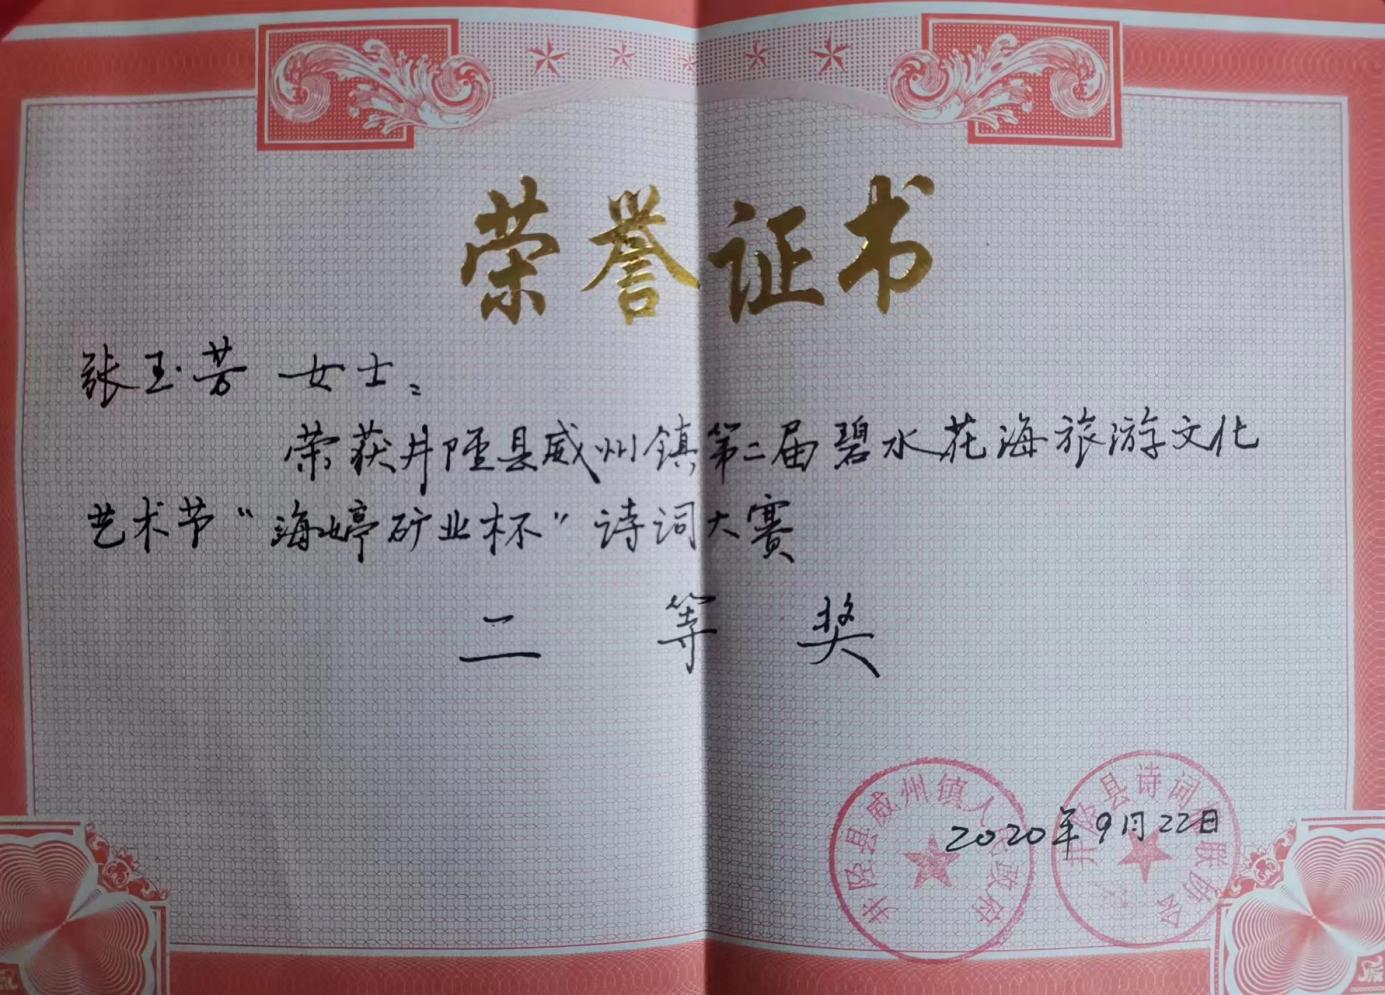 荣誉证书
张玉芳 女士：
荣获井陉县威州镇第二届碧水花海旅游文化
艺术节“海婷矿业杯”诗词大赛
二等奖
井陉县威州镇人民政府
井陉县诗词楹联协会
2020年9月22日